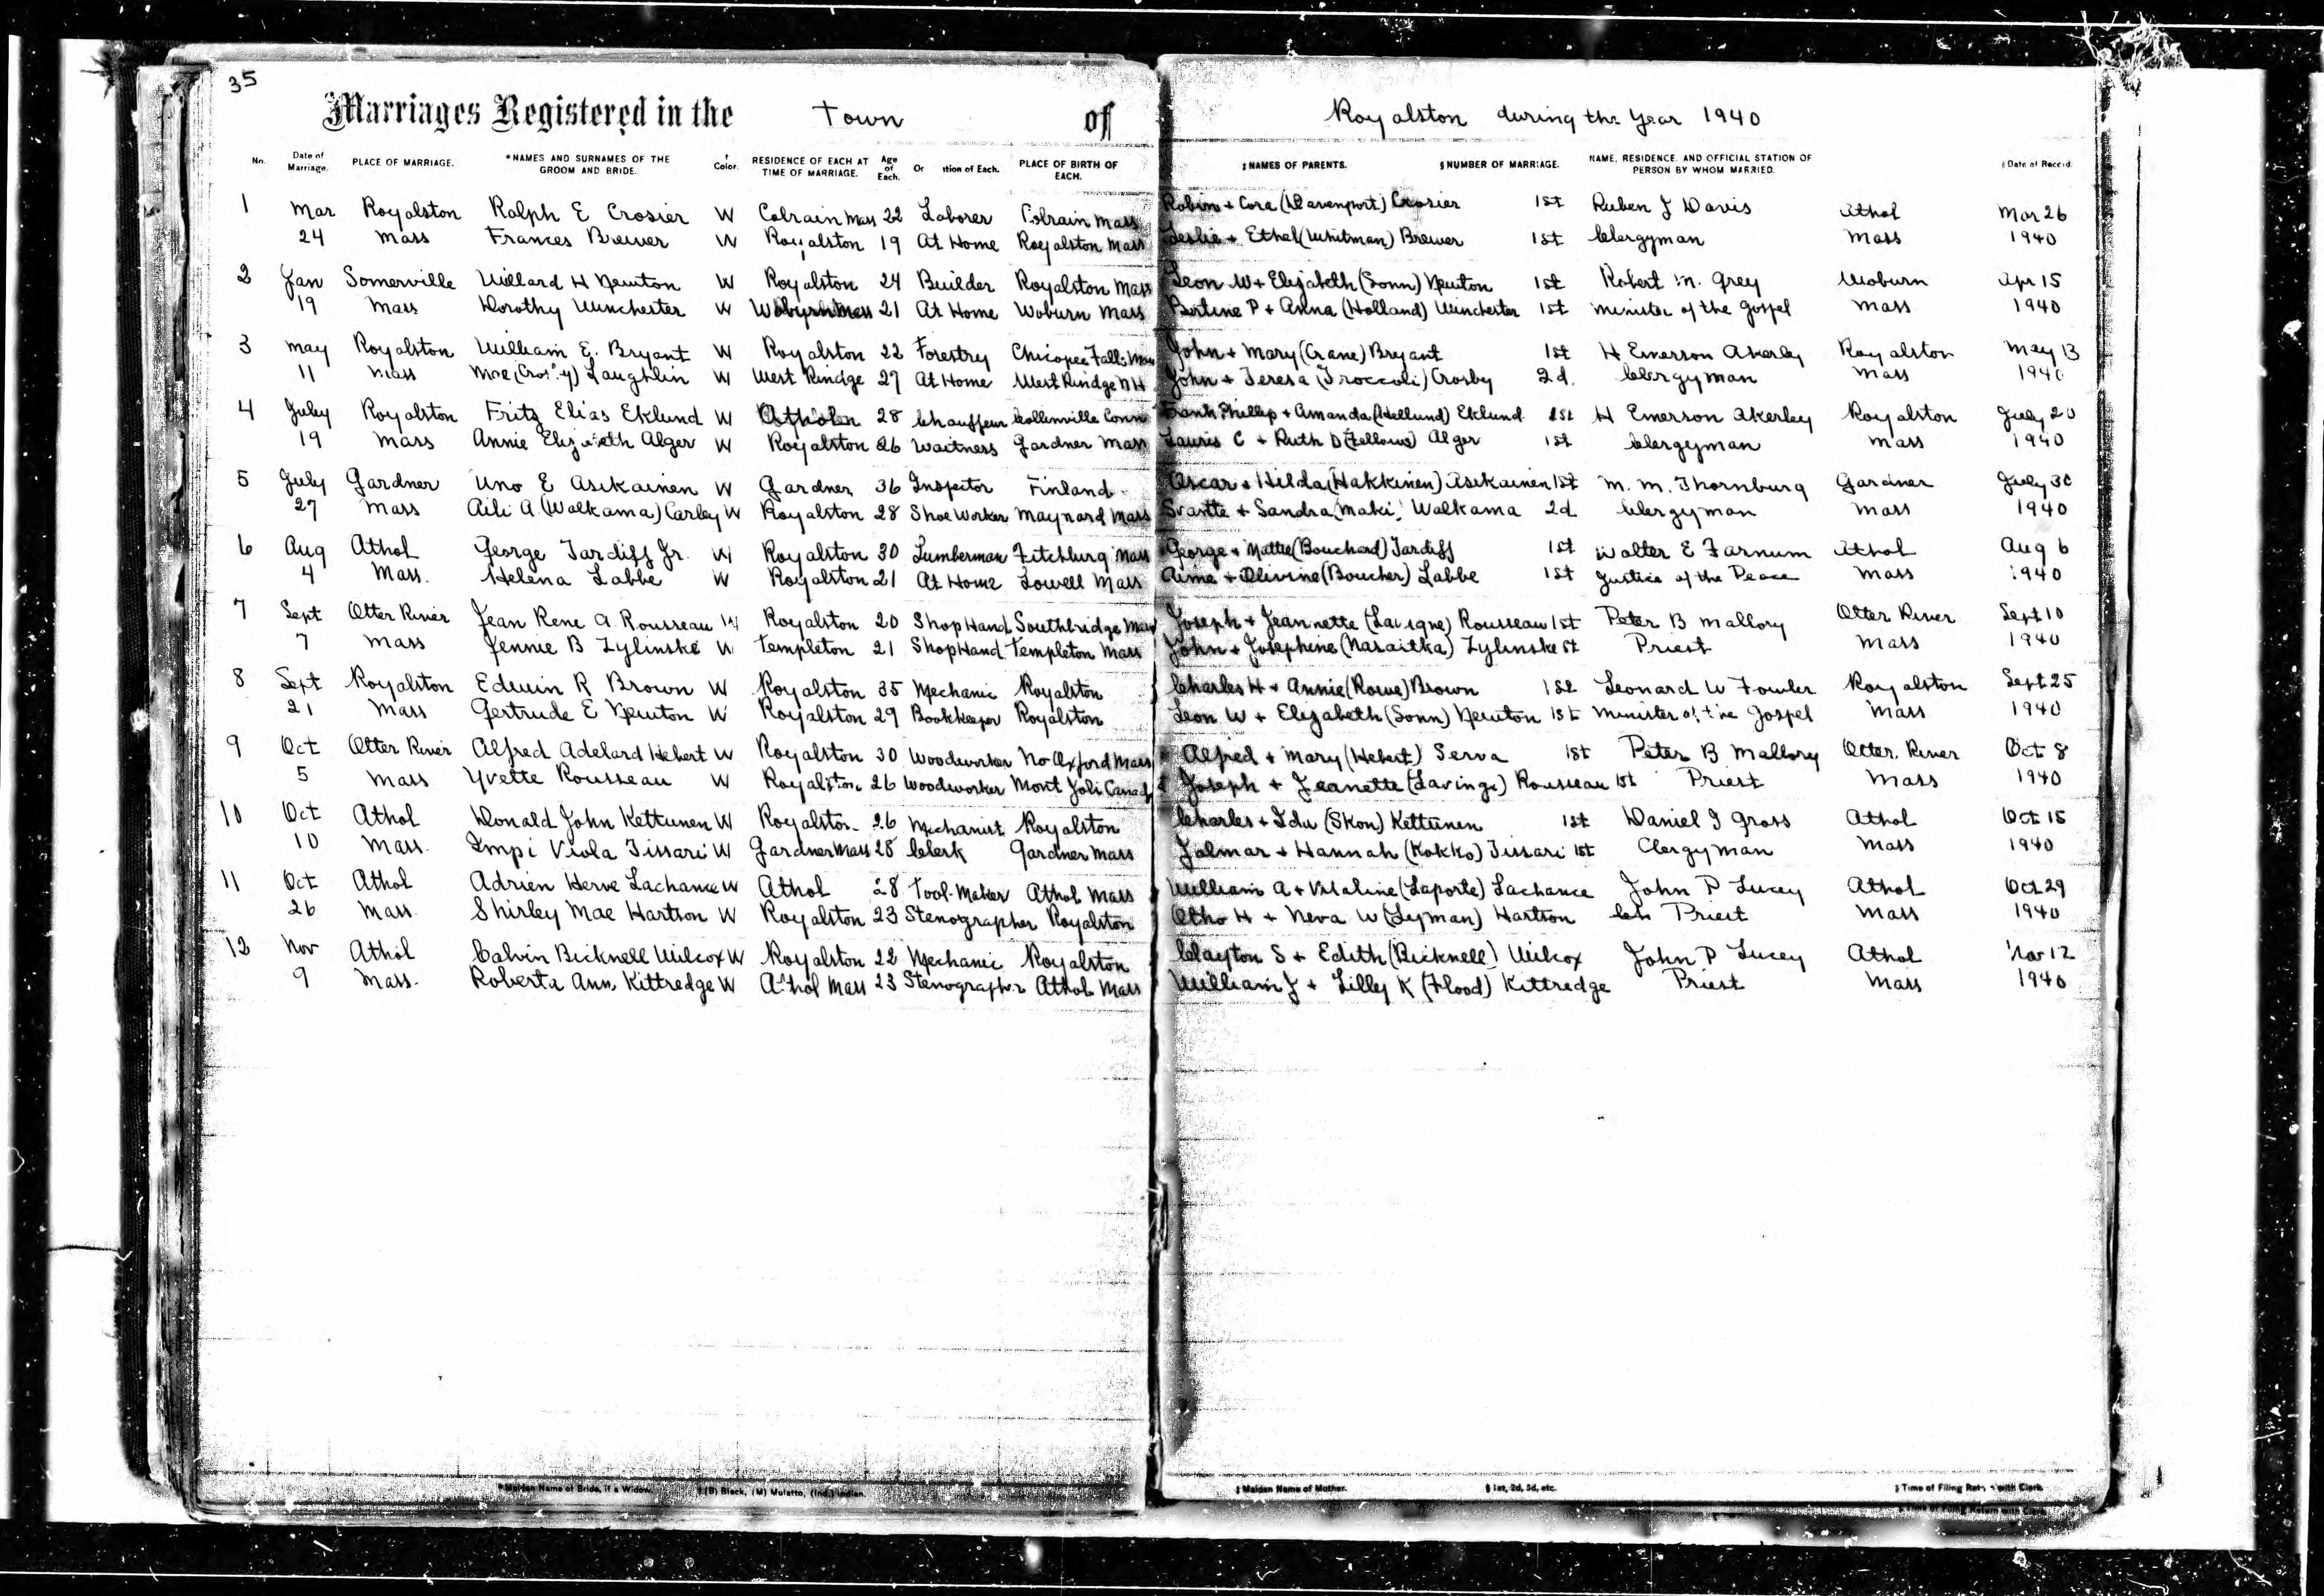 35
Marriages Registered in the Town of Royalston during the Year 1940
No. Date of Marriage. PLACE OF MARRIAGE. *NAMES AND SURNAMES OF THE GROOM AND BRIDE. † Color. RESIDENCE OF EACH AT TIME OF MARRIAGE. Age of Each. tion of Each. PLACE OF BIRTH OF EACH. ‡ NAMES OF PARENTS. § NUMBER OF MARRIAGE. NAME, RESIDENCE, AND OFFICIAL STATION OF PERSON BY WHOM MARRIED. ‖ Date of Record.
1 Mar Royalston Ralph E Crosier W Colrain Mass 22 Laborer Colrain Mass Robin + Cora (Davenport) Crosier 1st Ruben J Davis Athol Mar 26
24 Mass Frances Brewer W Royalston 19 At Home Royalston Mass Leslie + Ethel (Whitman) Brewer 1st Clergyman Mass 1940
2 Jan Somerville Willard H Newton W Royalston 24 Builder Royalston Mass Leon W + Elizabeth (Sonn) Newton 1st Robert M. Grey Woburn Apr 15
19 Mass Dorothy Winchester W Woburn Mass 21 At Home Woburn Mass P + Anna (Holland) Winchester 1st Minister of the Gospel Mass 1940
3 May Royalston William E. Bryant W Royalston 22 Forestry Chicopee Falls Mass John + Mary (Crane) Bryant 1st H Emerson Akerley Royalston May 13
11 Mass Mae (Crosby) Laughlin W West Rindge 27 At Home West Rindge NH John + Teresa (Troccoli) Crosby 2d. Clergyman Mass 1940
4 July Royalston Fritz Elias Eklund W Athol 28 Chauffeur Collinville Conn Frank Phillip + Amanda (Hellund) Eklund 1st H Emerson Akerley Royalston July 20
19 Mass Annie Elizabeth Alger W Royalston 26 Waitness Gardner Mass Lauris C + Ruth D (Fellows) Alger 1st Clergyman Mass 1940
5 July Gardner Uno E Asikainen W Gardner 36 Inspector Finland Oscar + Hilda (Hakkinen) Asikainen 1st M. M. Thornburg Gardner July 30
27 Mass Aili A. (Walkama) Carley W Royalston 28 Shoe Worker Maynard Mass Svante + Sandra (Maki) Walkama 2d Clergyman Mass 1940
6 Aug Athol George Tardiff Jr. W Royalston 30 Lumberman Fitchburg Mass George + Mattie (Bouchard) Tardiff 1st Walter E Farnum Athol Aug 6
4 Mass. Helena Labbe W Royalston 21 At Home Lowell Mass Aime + Olivine (Boucher) Labbe 1st Justice of the Peace Mass 1940
7 Sept Otter River Jean Rene A. Rousseau W Royalston 20 Shop Hand Southbridge Mass Joseph + Jeannette (Lavigne) Rousseau 1st Peter B Mallory Otter River Sept 10
7 Mass Jennie B Zylinski W Templeton 21 Shop Hand Templeton Mass John + Josephine (Naraitka) Zylinske st Priest Mass 1940
8 Sept Royalston Edwin R Brown W Royalston 35 Mechanic Royalston Charles H + Annie (Rowe) Brown 1st Leonard W Fowler Royalston Sept 25
21 Mass Gertrude E Newton W Royalston 29 Bookkeeper Royalston Leon W + Elizabeth (Sonn) Newton 1st Minister of the Gospel Mass 1940
9 Oct Otter River Alfred Adelard Hebert W Royalston 30 Woodworker No Oxford Mass Alfred + Mary (Hebert) Serva 1st Peter B Mallory Otter River Oct 8
5 Mass Yvette Rousseau W Royalston 26 Woodworker Mont Joli Canad Joseph + Jeanette (Lavinge) Rousseau 1st Priest Mass 1940
10 Oct Athol Donald John Kettunen W Royalston 26 Mechanist Royalston Charles + Ida (Skon) Kettunen 1st Daniel I Gross Athol Oct 15
10 Mass. Impi Viola Tissari W Gardner Mass 28 Clerk Gardner Mass Jalmar + Hannah (Kokko) Tissari 1st Clergyman Mass 1940
11 Oct Athol Adrien Herve Lachance W Athol 28 Tool-Maker Athol Mass William A + Vitaline (Laporte) Lachance John P Lucey Athol Oct 29
26 Mass Shirley Mae Hartson W Royalston 23 Stenographer Royalston Otho H + Neva W (Lyman) Hartson Priest Mass 1940
12 Nov Athol Calvin Bicknell Wilcox W Royalston 22 Mechanic Royalston Clayton S + Edith (Bicknell) Wilcox John P Lucey Athol Nov 12
9 Mass. Roberta Ann Kittredge W Athol Mass 23 Stenographer Athol Mass William J + Lilly K (Flood) Kittredge Priest Mass 1940
* Maiden Name of Bride, if a Widow. † (B) Black, (M) Mulatto, (Ind.) Indian. ‡ Maiden Name of Mother. § 1st, 2d, 3d, etc. ‖ Time of Filing Return with Clerk.